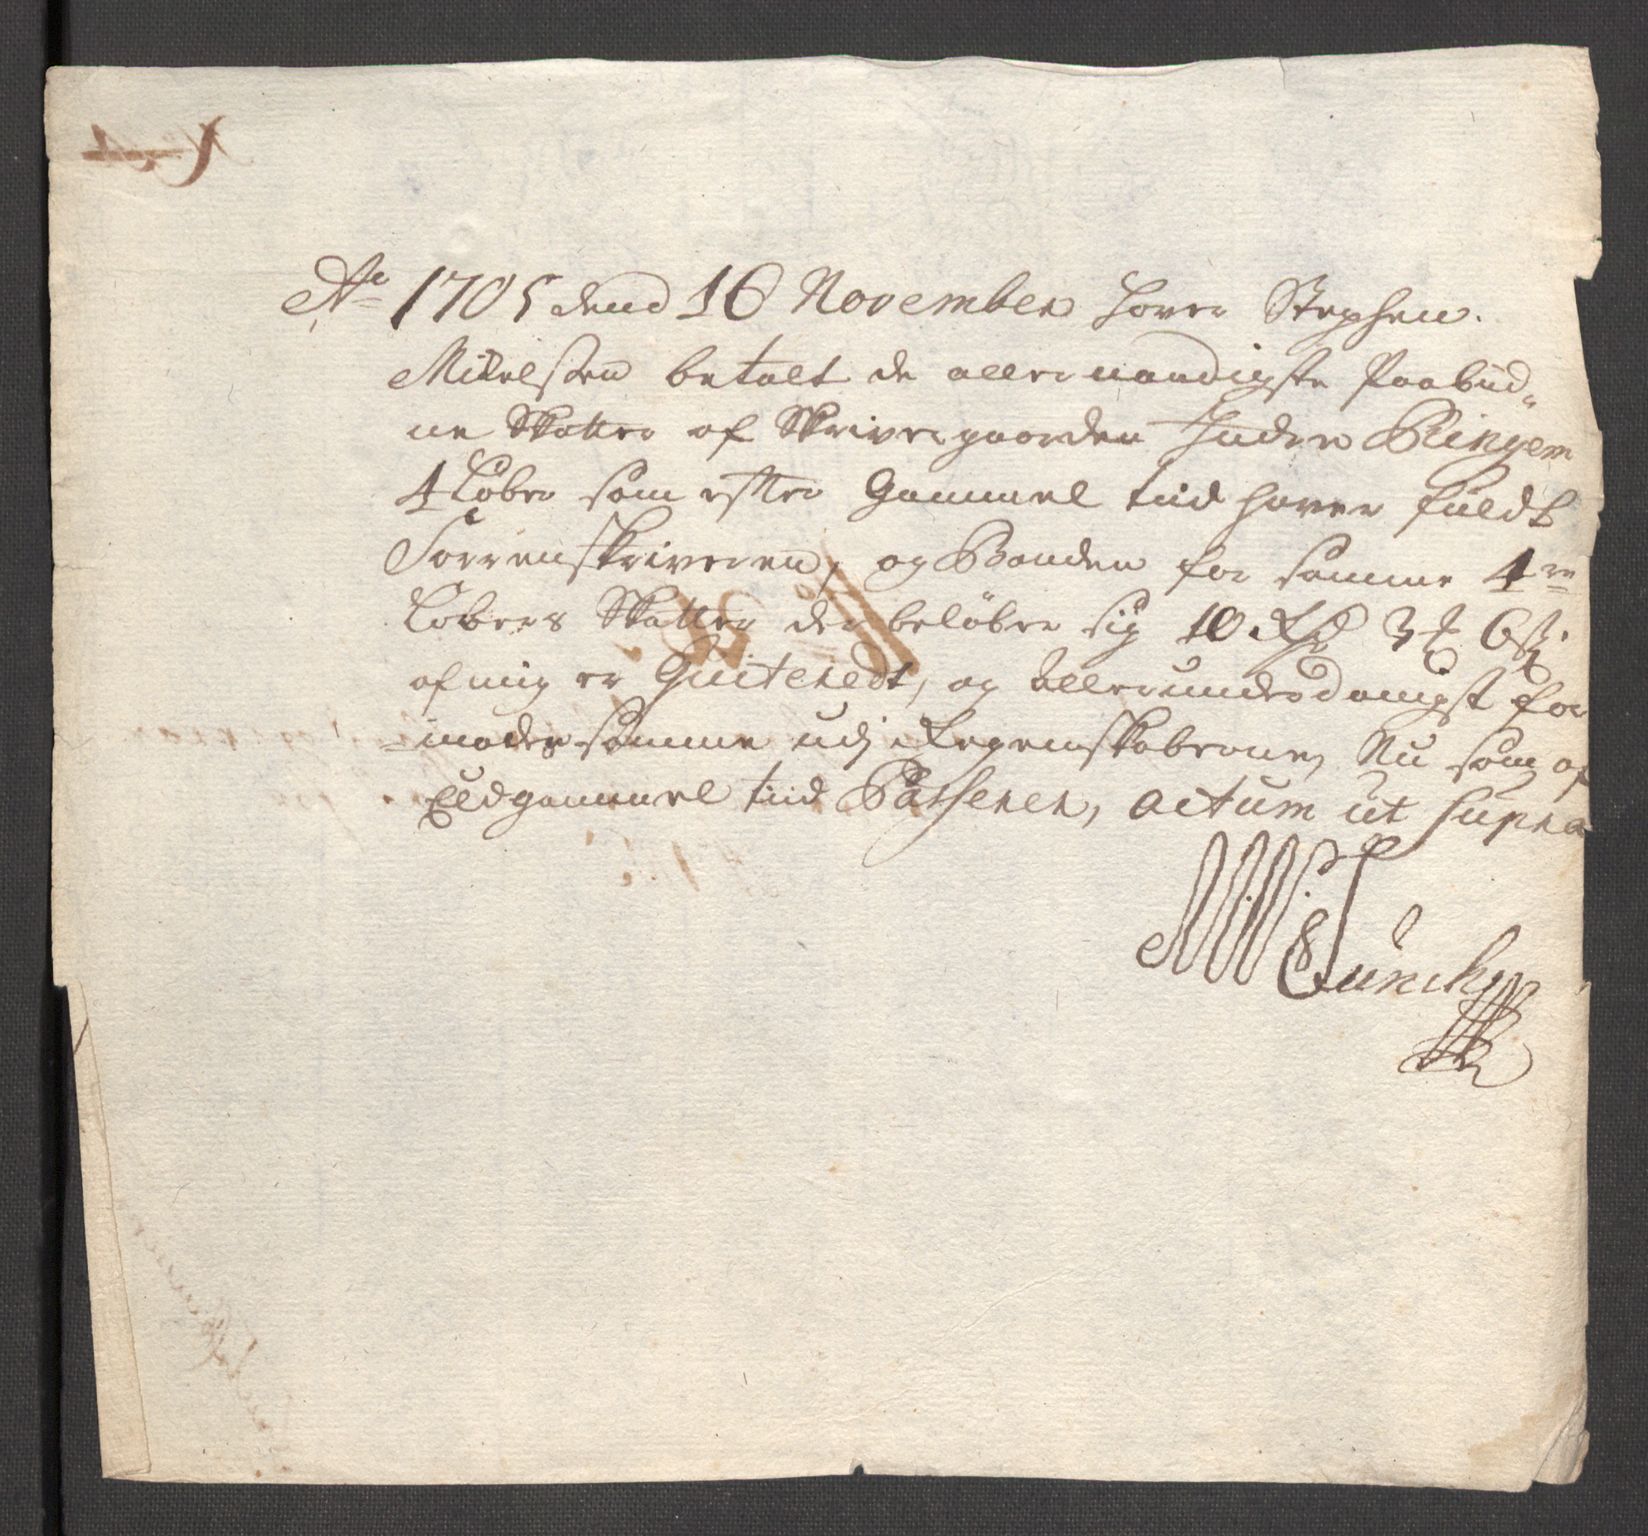 Ao 1705 dend 16 November haver Stephen
Mickelsen betalt de allernaadigste Paabud„
ne Skatter af Skrivergaarden Indre Ringem
4 Løber som efter Gammel tiid haver fuldt
Sorrenskriveren, og Bonden for samme 4re
Løbers Skatter der beløber sig 10 Rd 3 ß
af mig er Quiteret, og allerunderdanigst for
moder samme udj Regenskaberne, Nu som af
Eldgammel tiid Passerer, actum ut supra